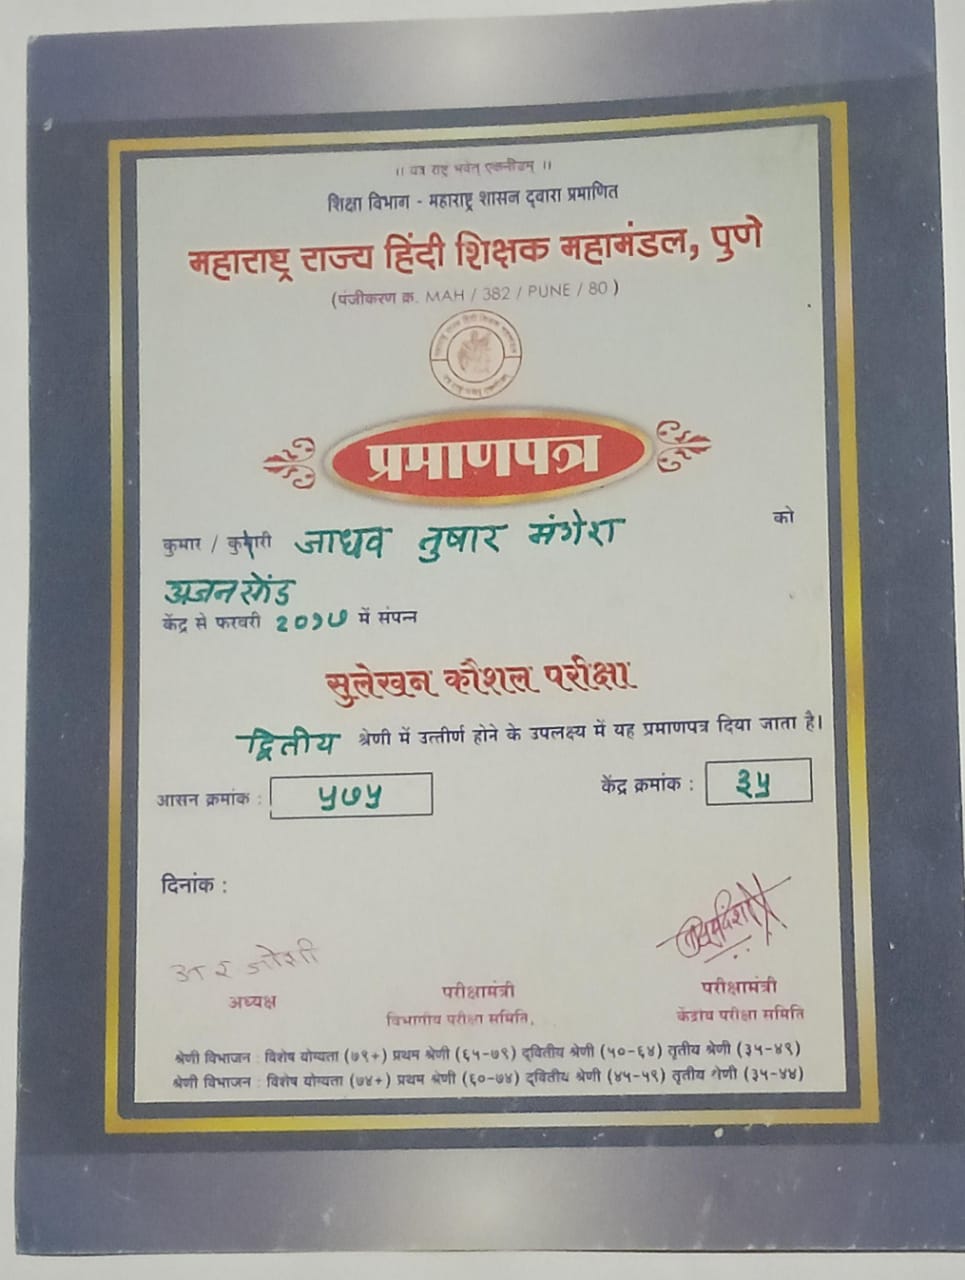 ।। यत्र राष्ट्र भवेत् एकनीडम् ।।
शिक्षा विभाग - महाराष्ट्र शासन द्वारा प्रमाणित
महाराष्ट्र राज्य हिंदी शिक्षक महामंडल, पुणे
(पंजीकरण क्र. MAH / 382 / PUNE / 80 )
प्रमाणपत्र
कुमार / कुमारी जाधव तुषार मंगेश को
अजनसोंड
केंद्र से फरवरी २०१७ में संपन्न
सुलेखन कौशल परीक्षा
द्वितीय श्रेणी में उत्तीर्ण होने के उपलक्ष्य में यह प्रमाणपत्र दिया जाता है।
आसन क्रमांक : ५७५ केंद्र क्रमांक : ३५
दिनांक :
जोशी
अध्यक्ष परीक्षामंत्री परीक्षामंत्री
विभागीय परीक्षा समिति, केंद्रीय परीक्षा समिति
श्रेणी विभाजन : विशेष योग्यता (७९+) प्रथम श्रेणी (६५-७९) द्वितीय श्रेणी (५०-६४) तृतीय श्रेणी (३५-४९)
श्रेणी विभाजन : विशेष योग्यता (७४+) प्रथम श्रेणी (६०-७४) द्वितीय श्रेणी (४५-५९) तृतीय श्रेणी (३५-४४)